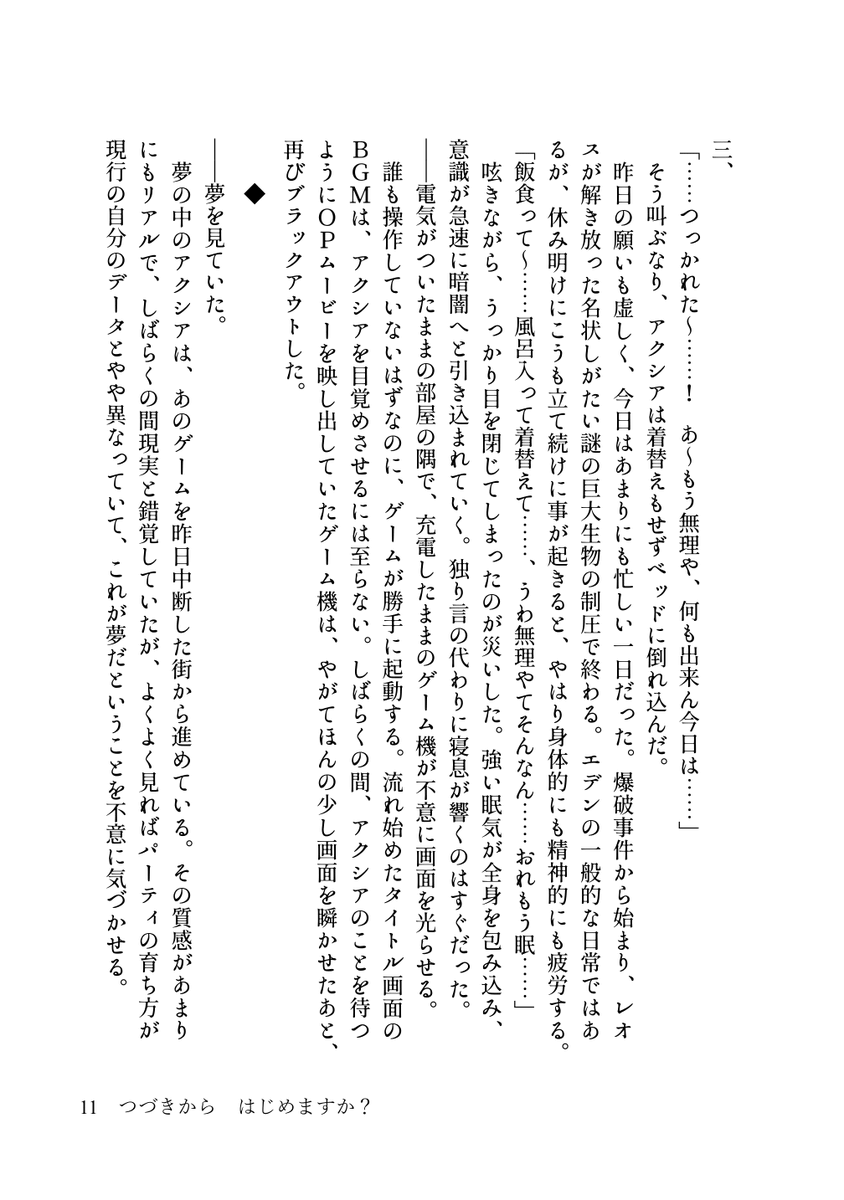 三、
「……つっかれた～……！　あ～もう無理や、何も出来ん今日は……」
そう叫ぶなり、アクシアは着替えもせずベッドに倒れ込んだ。
昨日の願いも虚しく、今日はあまりにも忙しい一日だった。爆破事件から始まり、レオ
スが解き放った名状しがたい謎の巨大生物の制圧で終わる。エデンの一般的な日常ではあ
るが、休み明けにこうも立て続けに事が起きると、やはり身体的にも精神的にも疲労する。
「飯食って～……風呂入って着替えて……、うわ無理やてそんなん……おれもう眠……」
呟きながら、うっかり目を閉じてしまったのが災いした。強い眠気が全身を包み込み、
意識が急速に暗闇へと引き込まれていく。独り言の代わりに寝息が響くのはすぐだった。
――電気がついたままの部屋の隅で、充電したままのゲーム機が不意に画面を光らせる。
誰も操作していないはずなのに、ゲームが勝手に起動する。流れ始めたタイトル画面の
ＢＧＭは、アクシアを目覚めさせるには至らない。しばらくの間、アクシアのことを待つ
ようにＯＰムービーを映し出していたゲーム機は、やがてほんの少し画面を瞬かせたあと、
再びブラックアウトした。
◆
――夢を見ていた。
夢の中のアクシアは、あのゲームを昨日中断した街から進めている。その質感があまり
にもリアルで、しばらくの間現実と錯覚していたが、よくよく見ればパーティの育ち方が
現行の自分のデータとやや異なっていて、これが夢だということを不意に気づかせる。
11　つづきから　はじめますか？